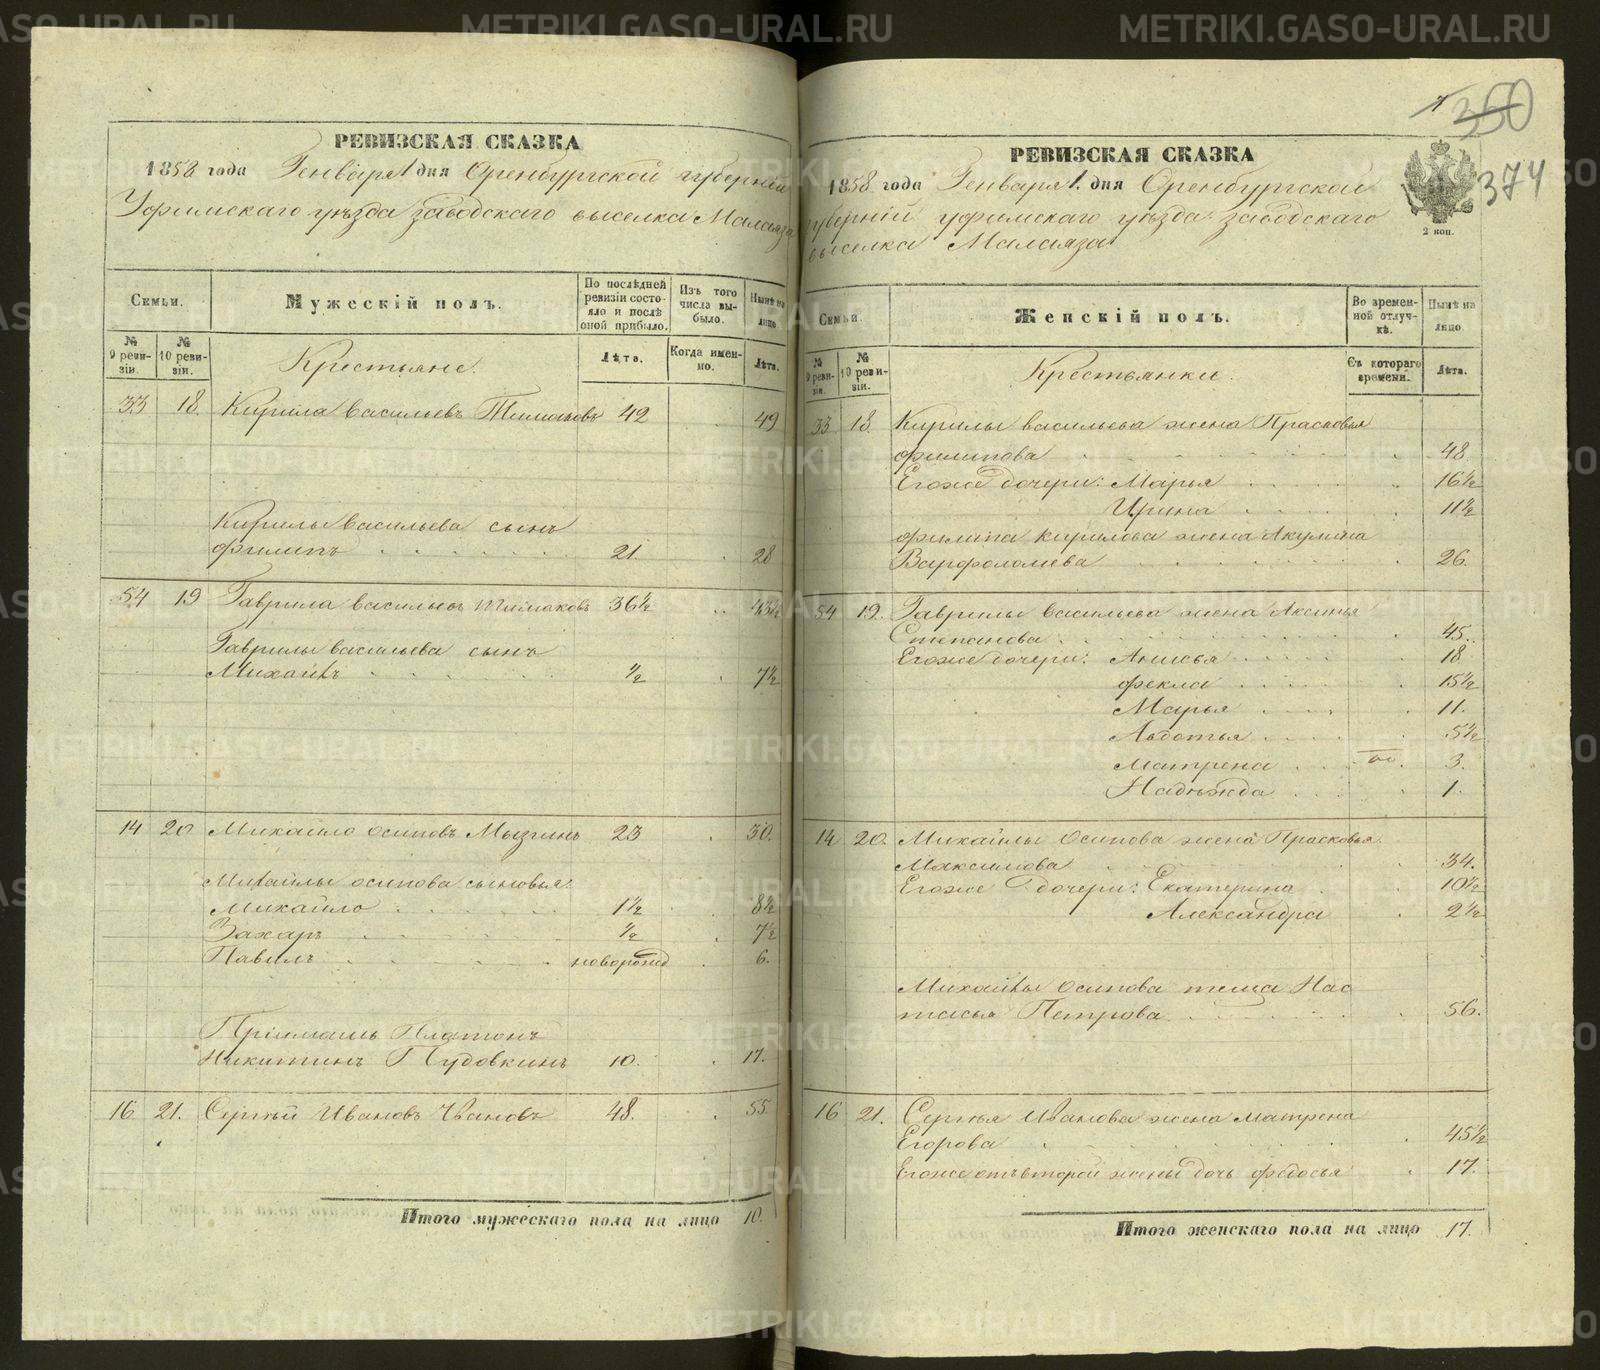 РЕВИЗСКАЯ СКАЗКА
1858 года Генваря 1 дня Оренбургской губерніи
Уфимскаго уѣзда заводскаго выселка Малаяза
Семьи.
Мужескій полъ.
По послѣдней ревизіи состояло и послѣ оной прибыло.
Изъ того числа выбыло.
Нынѣ на лицо
№ 9 ревизіи.
№ 10 ревизіи.
Крестьяне.
Лѣта.
Когда именно.
Лѣта.
33 18. Кирила Васильевъ Тимаковъ 42 49
Кирилы Васильева сынъ
Филипъ 21. 28
54 19 Гаврила Васильевъ Тимаковъ 36½ 43½
Гаврилы Васильева сынъ
Михаилъ ½ 7½
14 20 Михайло Осиповъ Мызгинъ 23 30.
Михайлы Осипова сыновья:
Михайло 1½ 8½
Захаръ ½ 7½
Павелъ новорожд 6.
Пріимышъ Платонъ
Никитинъ Пудовкинъ 10. 17.
16 21. Сергѣй Ивановъ Чвановъ 48. 55
Итого мужескаго пола на лицо 10.
350
374
РЕВИЗСКАЯ СКАЗКА
2 коп.
1858 года Генваря 1. дня Оренбургской
губерніи Уфимскаго уѣзда заводскаго
выселка Малаяза
Семьи.
Женскій полъ.
Во временной отлучкѣ.
Нынѣ на лицо.
№ 9 ревизіи.
№ 10 ревизіи.
Крестьянки.
Съ котораго времени.
Лѣта.
33 18. Кирилы Васильева жена Прасковья
Филипова 48.
Егоже дочери: Марья 16½
Ирина 11½
Филипа Кирилова жена Акулина
Варфоломѣева 26.
54 19. Гаврилы Васильева жена Аксинья
Степанова 45.
Егоже дочери: Анисья 18
Фекла 15½
Марья 11.
Авдотья 5½
Матрена 3.
Надѣжда 1.
14 20. Михайлы Осипова жена Прасковья
Максимова 34.
Егоже дочери: Екатерина 10½
Александра 2½
Михайлы Осипова теща Нас
тасья Петрова 56.
16 21. Сергѣя Иванова жена Матрена
Егорова 45½
Егоже отъ второй жены дочь Федосья 17.
Итого женскаго пола на лицо 17.
METRIKI.GASO-URAL.RU